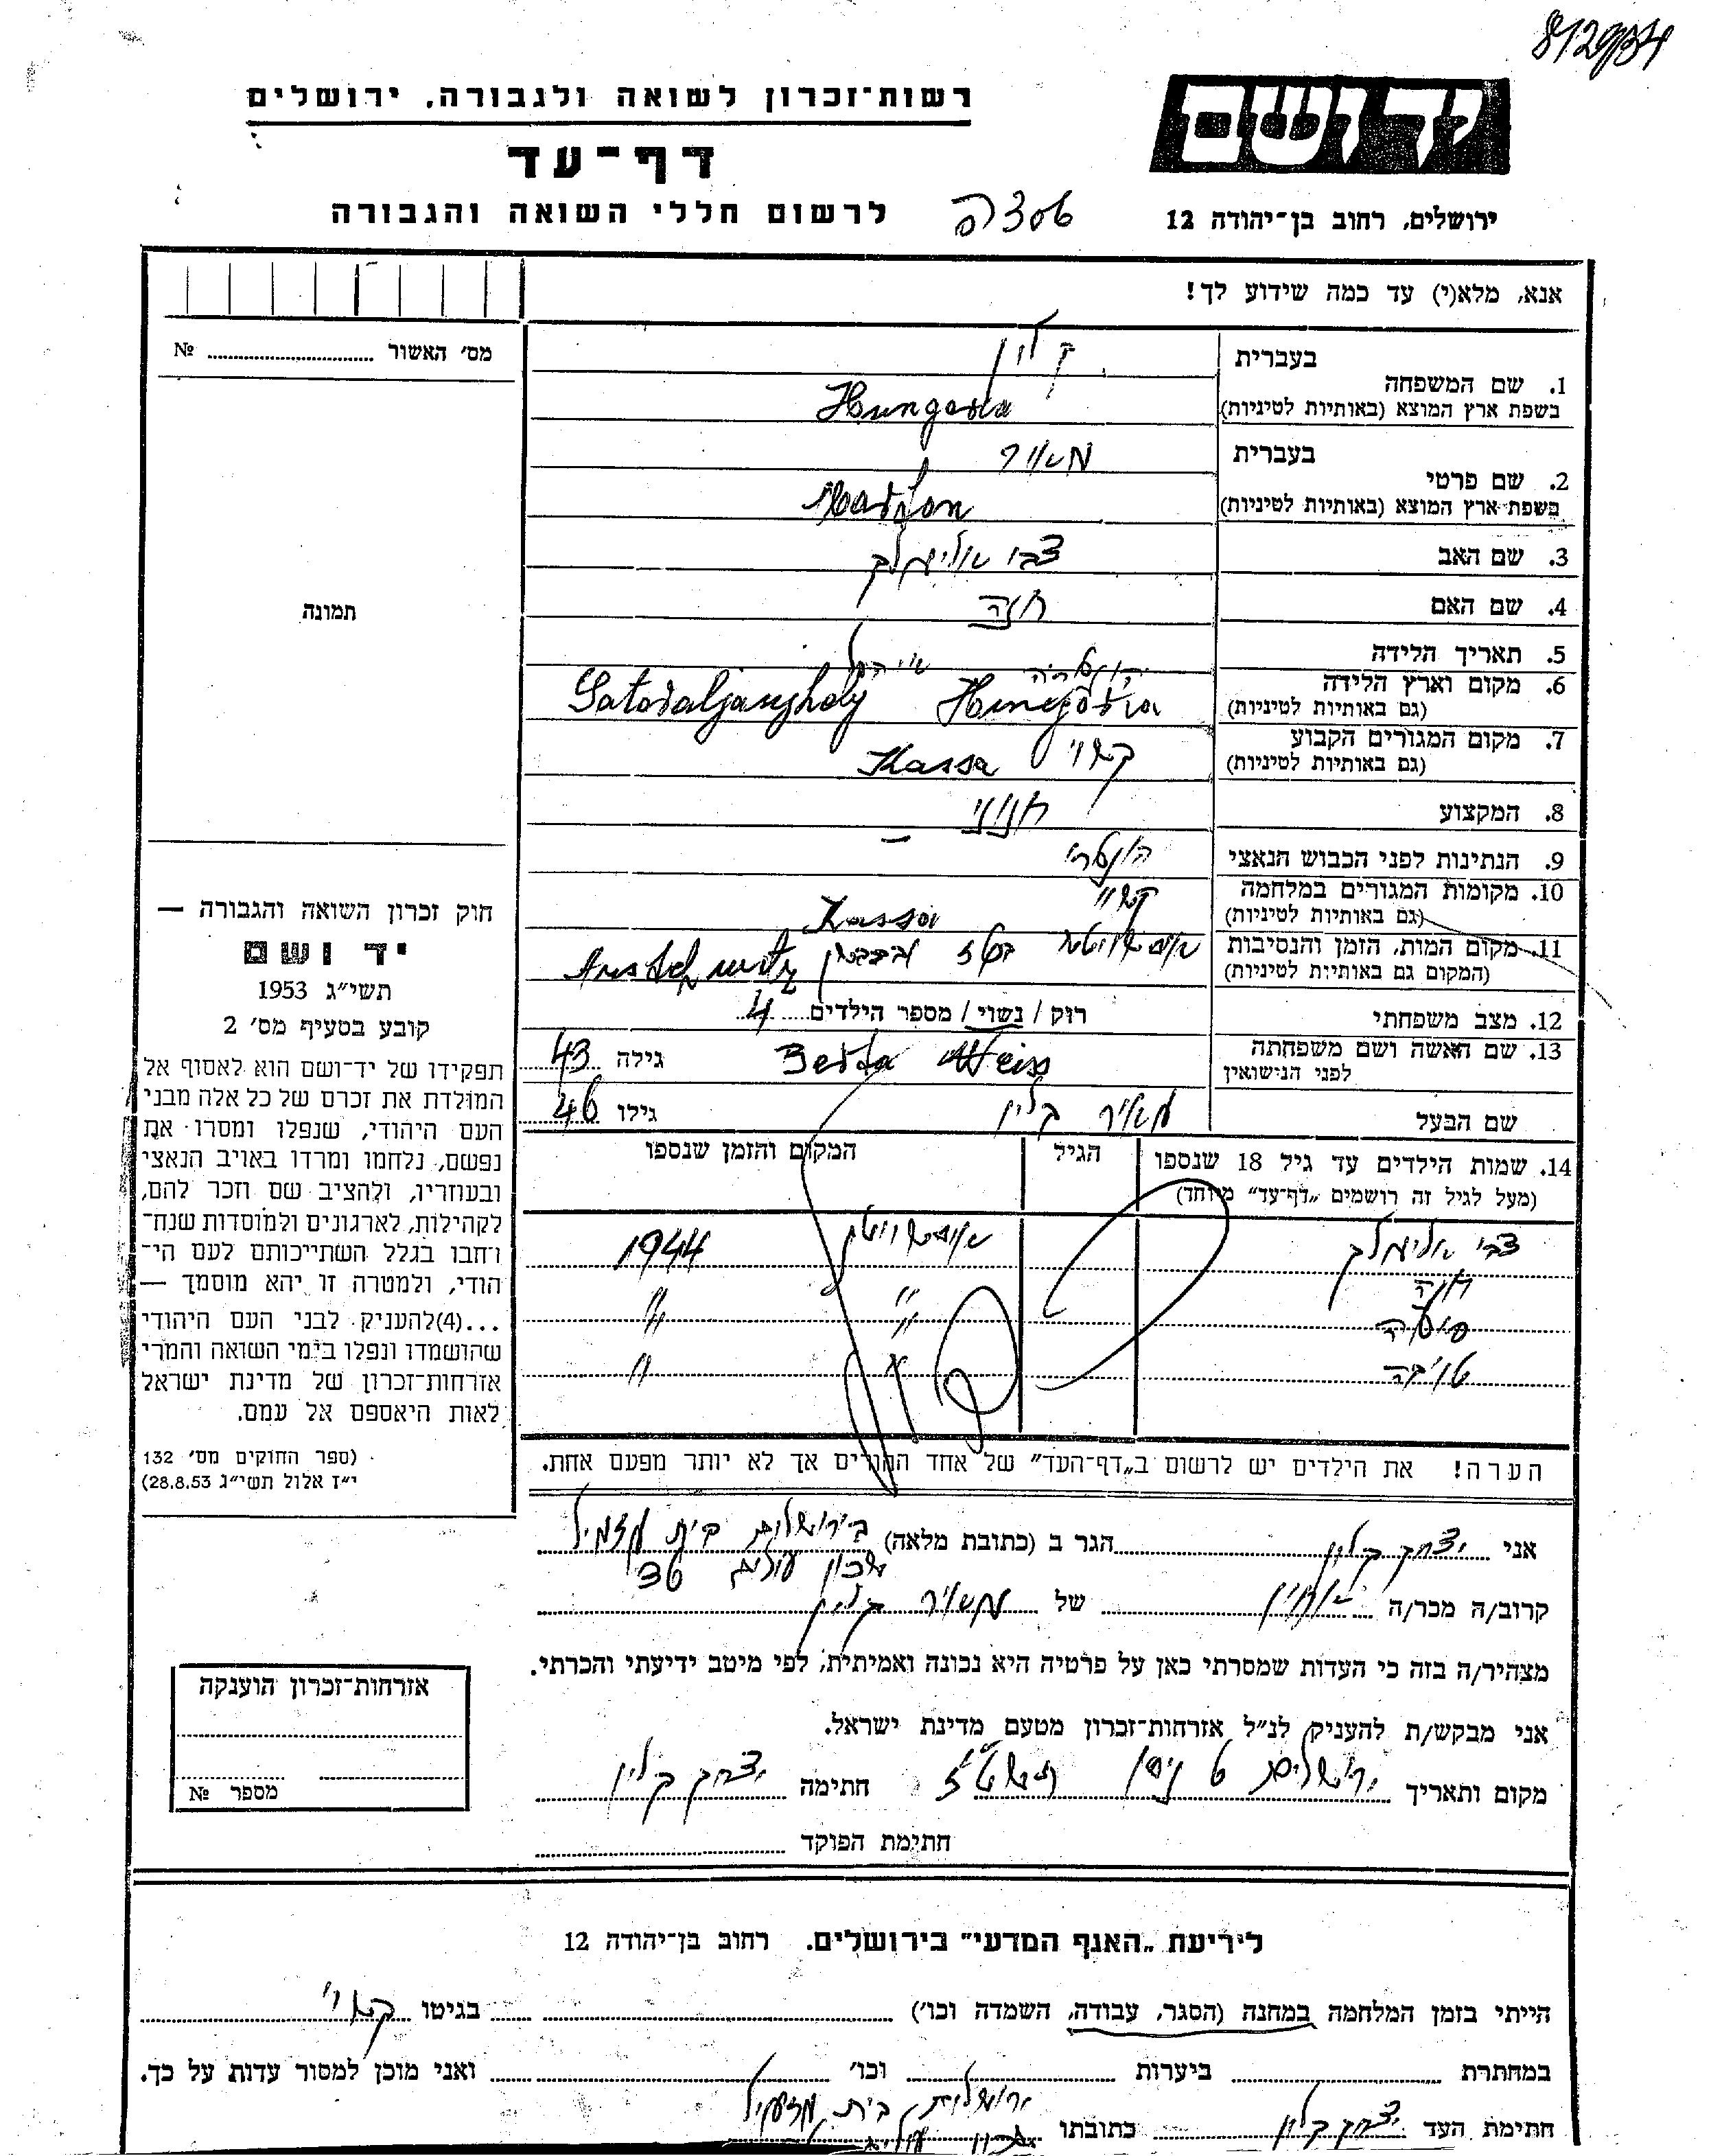 רשות־זכרון לשואה ולגבורה, ירושלים
יד ושם
דף־עד
לרשום חללי השואה והגבורה
ירושלים, רחוב בן־יהודה 12
אנא, מלא(י) עד כמה שידוע לך!
מס' האשור № 
בעברית קליין
1. שם המשפחה
בשפת ארץ המוצא (באותיות לטיניות)
בעברית מאיר
2. שם פרטי
בשפת ארץ המוצא (באותיות לטיניות)
3. שם האב צבי אלימלך
4. שם האם חנה
5. תאריך הלידה
6. מקום וארץ הלידה
(גם באותיות לטיניות)
7. מקום המגורים הקבוע קשוי Kassa
(גם באותיות לטיניות)
8. המקצוע חנוני
9. הנתינות לפני הכבוש הנאצי הונגרי
10. מקומות המגורים במלחמה קשוי
(גם באותיות לטיניות) Kassa
11. מקום המות, הזמן והנסיבות
(המקום גם באותיות לטיניות)
12. מצב משפחתי רוק / נשוי / מספר הילדים 4
13. שם האשה ושם משפחתה Berta Weiss גילה 43
לפני הנישואין
שם הבעל מאיר קליין גילו 46
14. שמות הילדים עד גיל 18 שנספו הגיל המקום והזמן שנספו
(מעל לגיל זה רושמים "דף־עד" מיוחד)
צבי אלימלך אושוויץ 1944
חנה " "
" "
טויבה " "
הערה! את הילדים יש לרשום ב"דף־העד" של אחד ההורים אך לא יותר מפעם אחת.
תמונה
חוק זכרון השואה והגבורה —
יד ושם
תשי"ג 1953
קובע בסעיף מס' 2
תפקידו של יד־ושם הוא לאסוף אל
המולדת את זכרם של כל אלה מבני
העם היהודי, שנפלו ומסרו את
נפשם, נלחמו ומרדו באויב הנאצי
ובעוזריו, ולהציב שם וזכר להם,
לקהילות, לארגונים ולמוסדות שנח־
רבו בגלל השתייכותם לעם הי־
הודי, ולמטרה זו יהא מוסמך —
...(4)להעניק לבני העם היהודי
שהושמדו ונפלו בימי השואה והמרי
אזרחות־זכרון של מדינת ישראל
לאות היאספם אל עמם.
(ספר החוקים מס' 132
י"ז אלול תשי"ג 28.8.53)
אני יצחק קליין הגר ב (כתובת מלאה) בירושלים בית מזמיל
שכון עולים
קרוב/ה מכר/ה של מאיר קליין
מצהיר/ה בזה כי העדות שמסרתי כאן על פרטיה היא נכונה ואמיתית, לפי מיטב ידיעתי והכרתי.
אני מבקש/ת להעניק לנ"ל אזרחות־זכרון מטעם מדינת ישראל.
מקום ותאריך ירושלים ט ניסן תשט"ז חתימה יצחק קליין
חתימת הפוקד
אזרחות־זכרון הוענקה
מספר №
ליריעת "האגף המדעי" בירושלים. רחוב בן־יהודה 12
הייתי בזמן המלחמה במחנה (הסגר, עבודה, השמדה וכו') בגיטו קשוי
במחתרת ביערות וכו' ואני מוכן למסור עדות על כך.
חתימת העד יצחק קליין כתובתו ירושלים, בית מזמיל